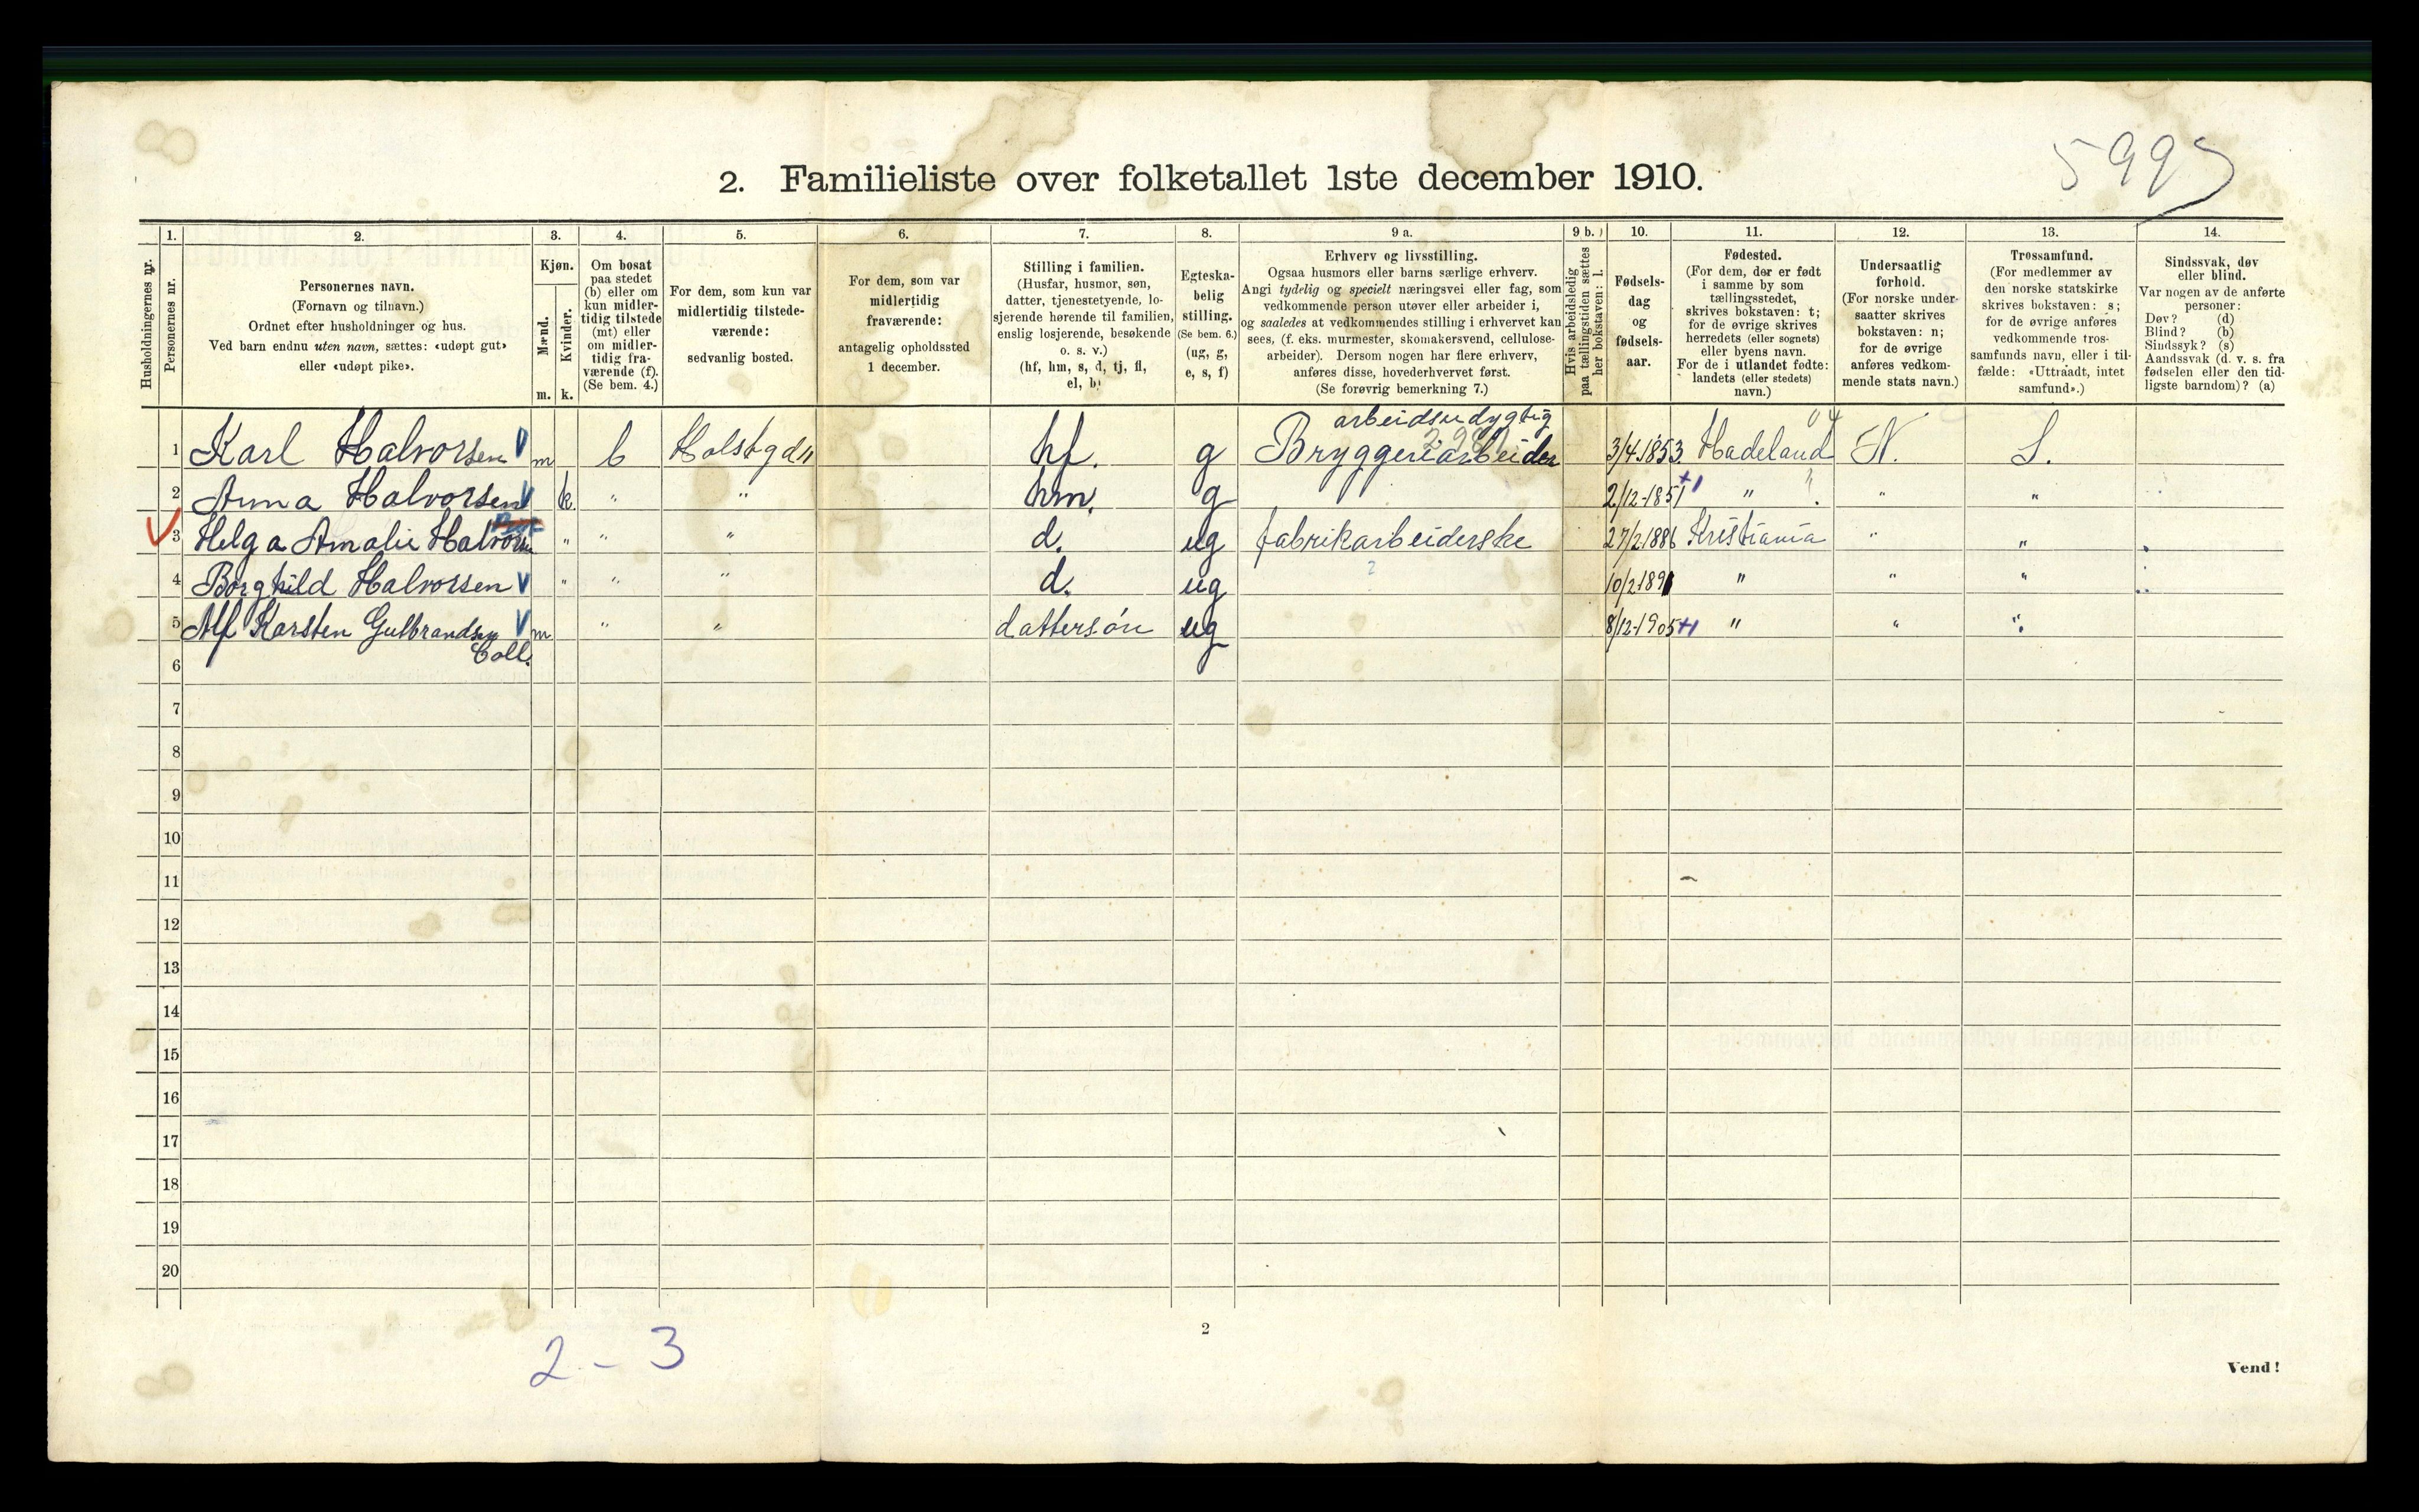 5995
2. Familieliste over folketallet 1ste december 1910.
1. 2. 3. 4. 5. 6. 7. 8. 9 a. 9 b. 10. 11. 12. 13. 14.
Husholdningernes nr.
Personernes nr.
Personernes navn.
(Fornavn og tilnavn.)
Ordnet efter husholdninger og hus.
Ved barn endnu uten navn, sættes: «udøpt gut»
eller «udøpt pike».
Kjøn.
Mænd.
Kvinder.
m. k.
Om bosat
paa stedet
(b) eller om
kun midler-
tidig tilstede
(mt) eller
om midler-
tidig fra-
værende (f).
(Se bem. 4.)
For dem, som kun var
midlertidig tilstede-
værende:
sedvanlig bosted.
For dem, som var
midlertidig
fraværende:
antagelig opholdssted
1 december.
Stilling i familien.
(Husfar, husmor, søn,
datter, tjenestetyende, lo-
sjerende hørende til familien,
enslig losjerende, besøkende
o. s. v.)
(hf, hm, s, d, tj, fl,
el, b)
Egteska-
belig
stilling.
(Se bem. 6.)
(ug, g,
e, s, f)
Erhverv og livsstilling.
Ogsaa husmors eller barns særlige erhverv.
Angi tydelig og specielt næringsvei eller fag, som
vedkommende person utøver eller arbeider i,
og saaledes at vedkommendes stilling i erhvervet kan
sees, (f. eks. murmester, skomakersvend, cellulose-
arbeider). Dersom nogen har flere erhverv,
anføres disse, hovederhvervet først.
(Se forøvrig bemerkning 7.)
Hvis arbeidsledig
paa tællingstiden sættes
her bokstaven: l.
Fødsels-
dag
og
fødsels-
aar.
Fødested.
(For dem, der er født
i samme by som
tællingsstedet,
skrives bokstaven: t;
for de øvrige skrives
herredets (eller sognets)
eller byens navn.
For de i utlandet fødte:
landets (eller stedets)
navn.)
Undersaatlig
forhold.
(For norske under-
saatter skrives
bokstaven: n;
for de øvrige
anføres vedkom-
mende stats navn.)
Trossamfund.
(For medlemmer av
den norske statskirke
skrives bokstaven: s;
for de øvrige anføres
vedkommende tros-
samfunds navn, eller i til-
fælde: «Uttraadt, intet
samfund».)
Sindssvak, døv
eller blind.
Var nogen av de anførte
personer:
Døv? (d)
Blind? (b)
Sindssyk? (s)
Aandssvak (d. v. s. fra
fødselen eller den tid-
ligste barndom)? (a)
arbeidsudygtig
1 Karl Halvorsen m b Holstgdn hf. g Bryggeriarbeider 3/4.1853. Hadeland N. S.
2 Anna Halvorsen k. " " hm. g 2/12-1851 +1 " " "
3 Helga Amalie Halvorsen " " " d. ug fabrikarbeiderske 27/2.1886 Kristiania " "
4 Borghild Halvorsen " " " d. ug 10/2 1891 " " "
5 Alf Karsten Gulbrandsen m " " dattersøn ug 8/12-1905 +1 " " "
Coll.
6
7
8
9
10
11
12
13
14
15
16
17
18
19
20
2
2 - 3
Vend!